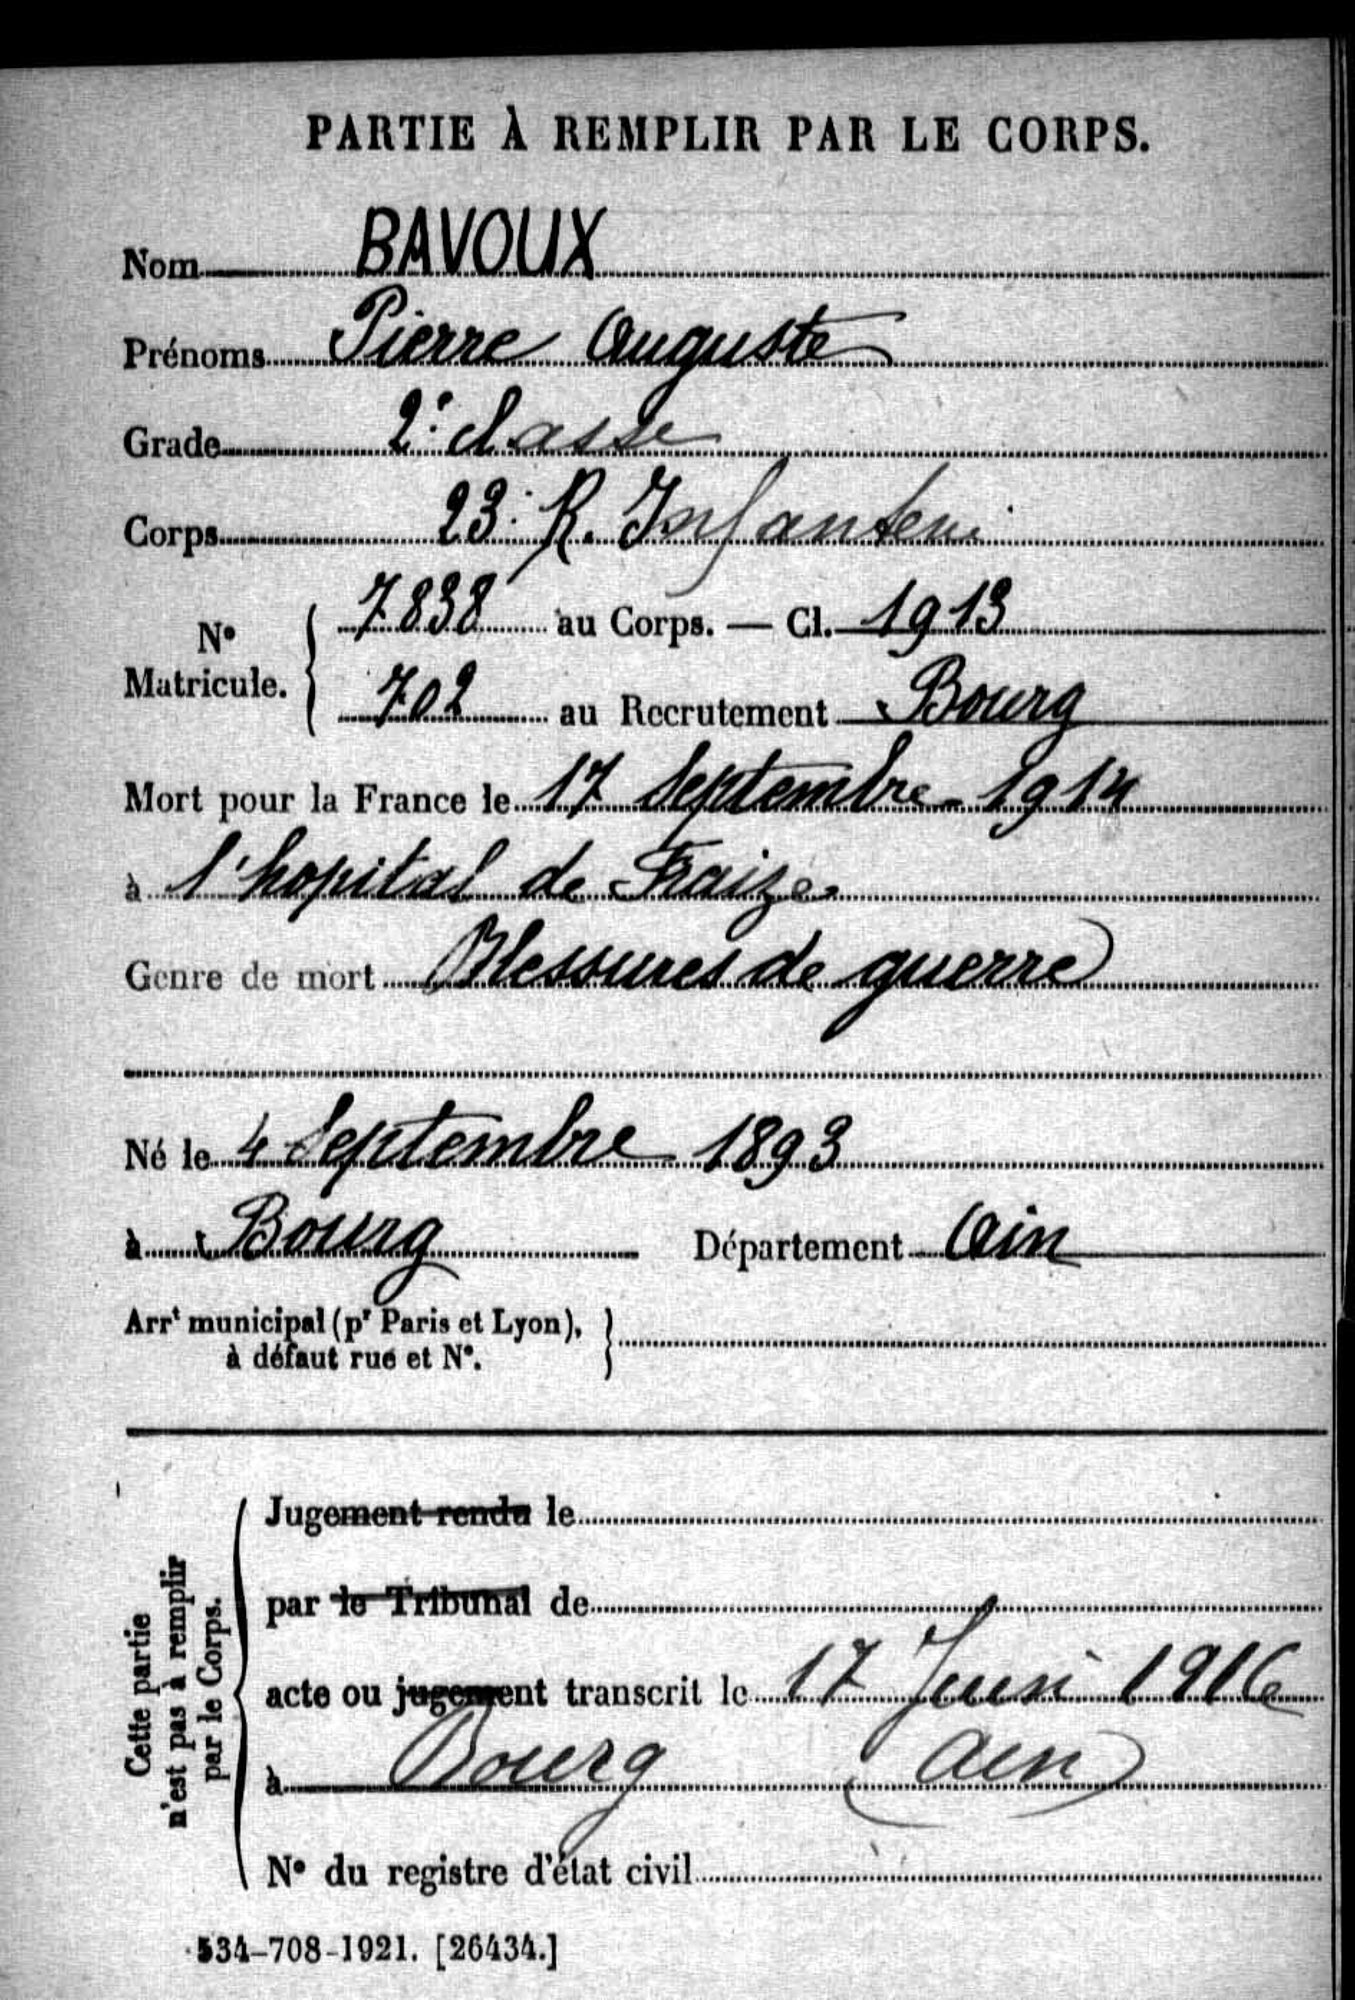 PARTIE À REMPLIR PAR LE CORPS.
Nom BAVOUX
Prénoms Pierre Auguste
Grade 2e classe
Corps 23e R. Infanterie
No Matricule. { 7838 au Corps. — Cl. 1913
702 au Recrutement Bourg
Mort pour la France le 17 Septembre 1914
à l'hopital de Fraize
Genre de mort Blessures de guerre
Né le 4 Septembre 1893
à Bourg Département Ain
Arrt municipal (pr Paris et Lyon), }
à défaut rue et No.
Cette partie
n'est pas à remplir
par le Corps.
Jugement rendu le
par le Tribunal de
acte ou jugement transcrit le 17 Juin 1916
à Bourg (Ain)
No du registre d'état civil
534-708-1921. [26434.]